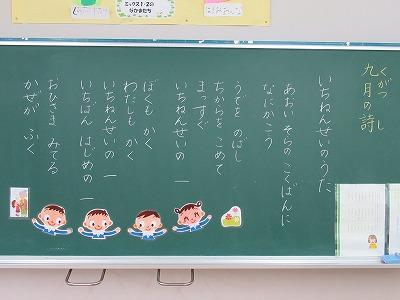 ミックス1・2の
なかまたち
くがつ し
九月の詩
いちねんせいのうた
あおい そらの こくばんに
なにかこう
うでを のばし
ちからを こめて
まっすぐ
いちねんせいの 一
ぼくも かく
わたしも かく
いちねんせいの 一
いちばん はじめの 一
おひさま みてる
かぜが ふく